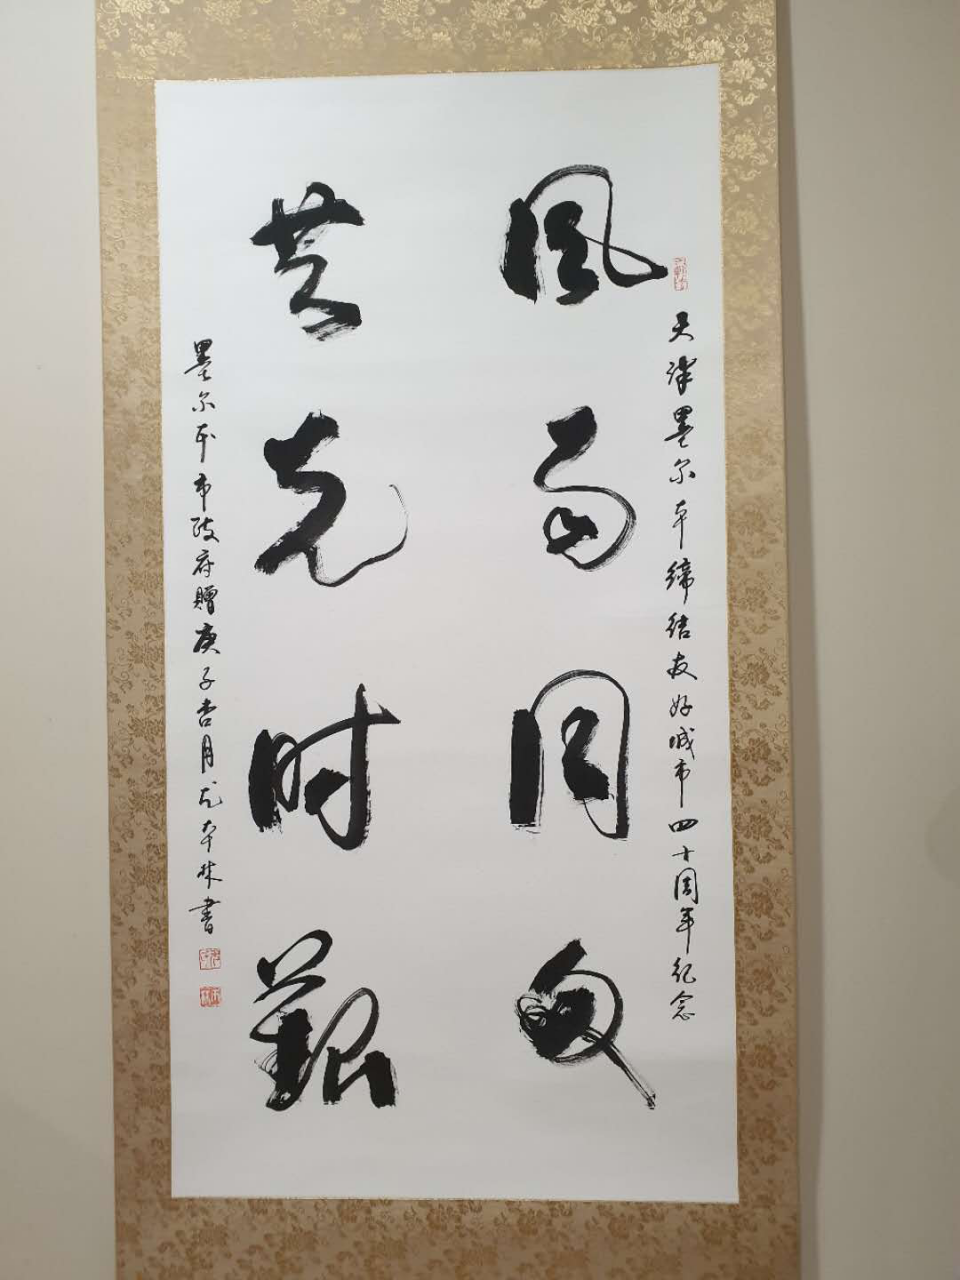 天津墨尔本缔结友好城市四十周年纪念
風雨同舟
共克时艱
墨尔本市政府贈庚子杏月 本林書